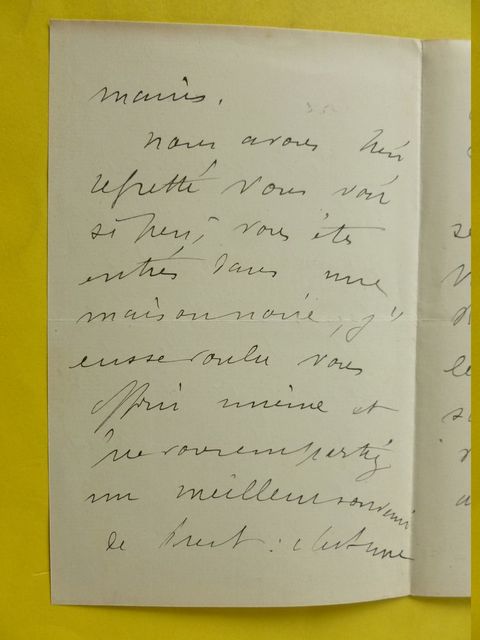 mains.
nous avons bien
regretté vous voir
si peu, vous êtes
entrés dans une
maison noire, j'
eusse voulu vous
offrir mieux et
que vous emportiez
un meilleur souvenir
de Brest : c'est une